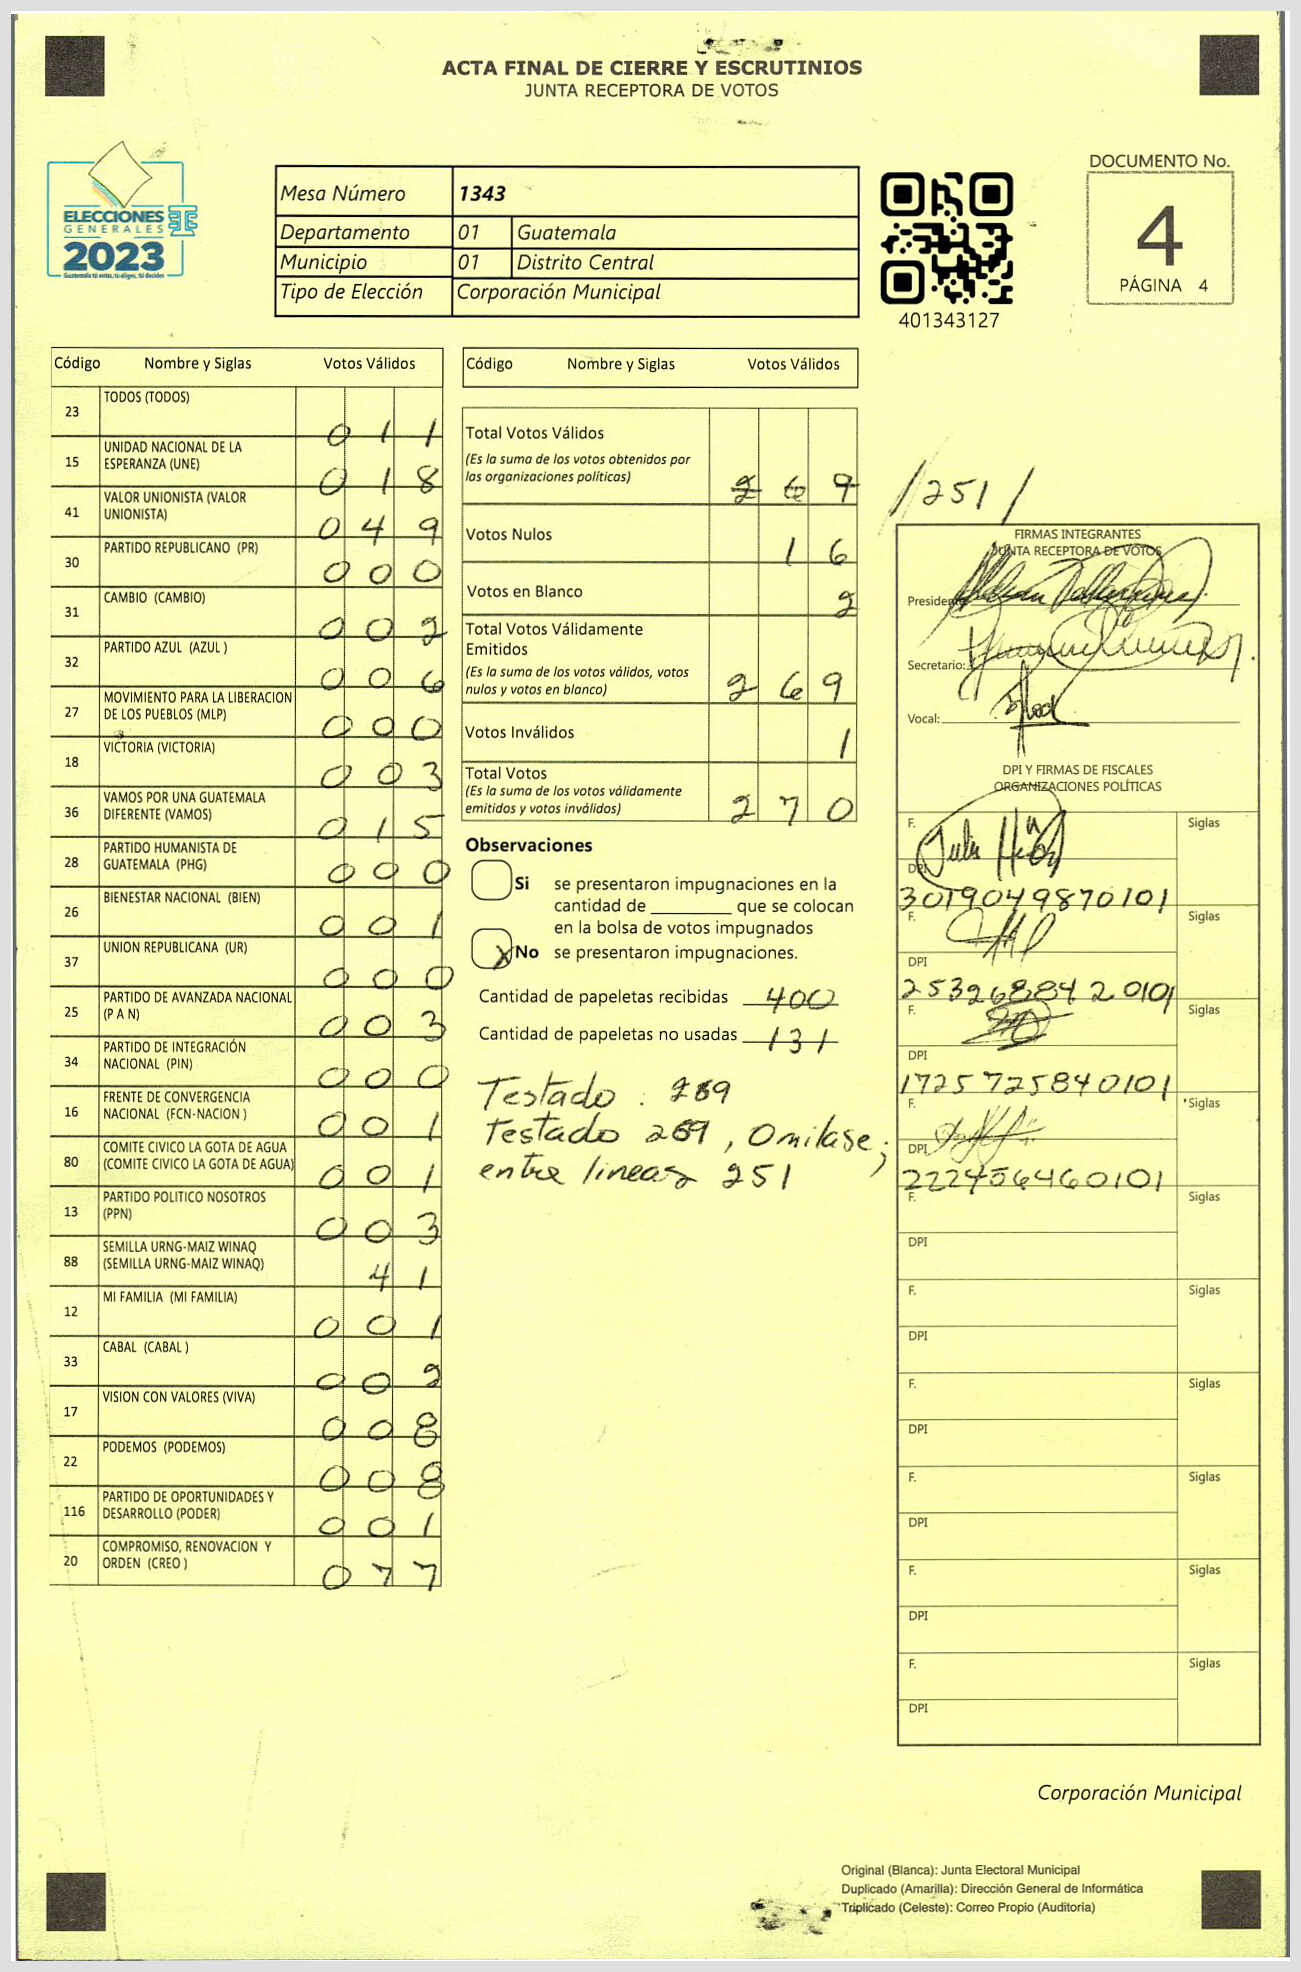 ACTA FINAL DE CIERRE Y ESCRUTINIOS
JUNTA RECEPTORA DE VOTOS
ELECCIONES
GENERALES
2023
Guatemala tú votas, tú eliges, tú decides
Mesa Número 1343
Departamento 01 Guatemala
Municipio 01 Distrito Central
Tipo de Elección Corporación Municipal
401343127
DOCUMENTO No.
4
PÁGINA 4
Código Nombre y Siglas Votos Válidos
23 TODOS (TODOS) 0 1 1
15 UNIDAD NACIONAL DE LA
ESPERANZA (UNE) 0 1 8
41 VALOR UNIONISTA (VALOR
UNIONISTA) 0 4 9
30 PARTIDO REPUBLICANO (PR) 0 0 0
31 CAMBIO (CAMBIO) 0 0 2
32 PARTIDO AZUL (AZUL ) 0 0 6
27 MOVIMIENTO PARA LA LIBERACION
DE LOS PUEBLOS (MLP) 0 0 0
18 VICTORIA (VICTORIA) 0 0 3
36 VAMOS POR UNA GUATEMALA
DIFERENTE (VAMOS) 0 1 5
28 PARTIDO HUMANISTA DE
GUATEMALA (PHG) 0 0 0
26 BIENESTAR NACIONAL (BIEN) 0 0 1
37 UNION REPUBLICANA (UR) 0 0 0
25 PARTIDO DE AVANZADA NACIONAL
(P A N) 0 0 3
34 PARTIDO DE INTEGRACIÓN
NACIONAL (PIN) 0 0 0
16 FRENTE DE CONVERGENCIA
NACIONAL (FCN-NACION ) 0 0 1
80 COMITE CIVICO LA GOTA DE AGUA
(COMITE CIVICO LA GOTA DE AGUA) 0 0 1
13 PARTIDO POLITICO NOSOTROS
(PPN) 0 0 3
88 SEMILLA URNG-MAIZ WINAQ
(SEMILLA URNG-MAIZ WINAQ) 4 1
12 MI FAMILIA (MI FAMILIA) 0 0 1
33 CABAL (CABAL ) 0 0 2
17 VISION CON VALORES (VIVA) 0 0 8
22 PODEMOS (PODEMOS) 0 0 8
116 PARTIDO DE OPORTUNIDADES Y
DESARROLLO (PODER) 0 0 1
20 COMPROMISO, RENOVACION Y
ORDEN (CREO ) 0 7 7
Código Nombre y Siglas Votos Válidos
Total Votos Válidos
(Es la suma de los votos obtenidos por
las organizaciones políticas) 2 6 9
/ 251 /
Votos Nulos 1 6
Votos en Blanco 2
Total Votos Válidamente
Emitidos
(Es la suma de los votos válidos, votos
nulos y votos en blanco) 2 6 9
Votos Inválidos 1
Total Votos
(Es la suma de los votos válidamente
emitidos y votos inválidos) 2 7 0
Observaciones
Si se presentaron impugnaciones en la
cantidad de ________ que se colocan
en la bolsa de votos impugnados
X No se presentaron impugnaciones.
Cantidad de papeletas recibidas 400
Cantidad de papeletas no usadas 131
Testado : 269
Testado 269, Omitase;
entre lineas 251
FIRMAS INTEGRANTES
JUNTA RECEPTORA DE VOTOS
Presidente:
Secretario:
Vocal:
DPI Y FIRMAS DE FISCALES
ORGANIZACIONES POLÍTICAS
F. Siglas
DPI
3019049870101
F. Siglas
DPI
2532688420101
F. Siglas
DPI
1725725840101
F. Siglas
DPI
2224564660101
F. Siglas
DPI
F. Siglas
DPI
F. Siglas
DPI
F. Siglas
DPI
F. Siglas
DPI
F. Siglas
DPI
Corporación Municipal
Original (Blanca): Junta Electoral Municipal
Duplicado (Amarilla): Dirección General de Informática
Triplicado (Celeste): Correo Propio (Auditoria)